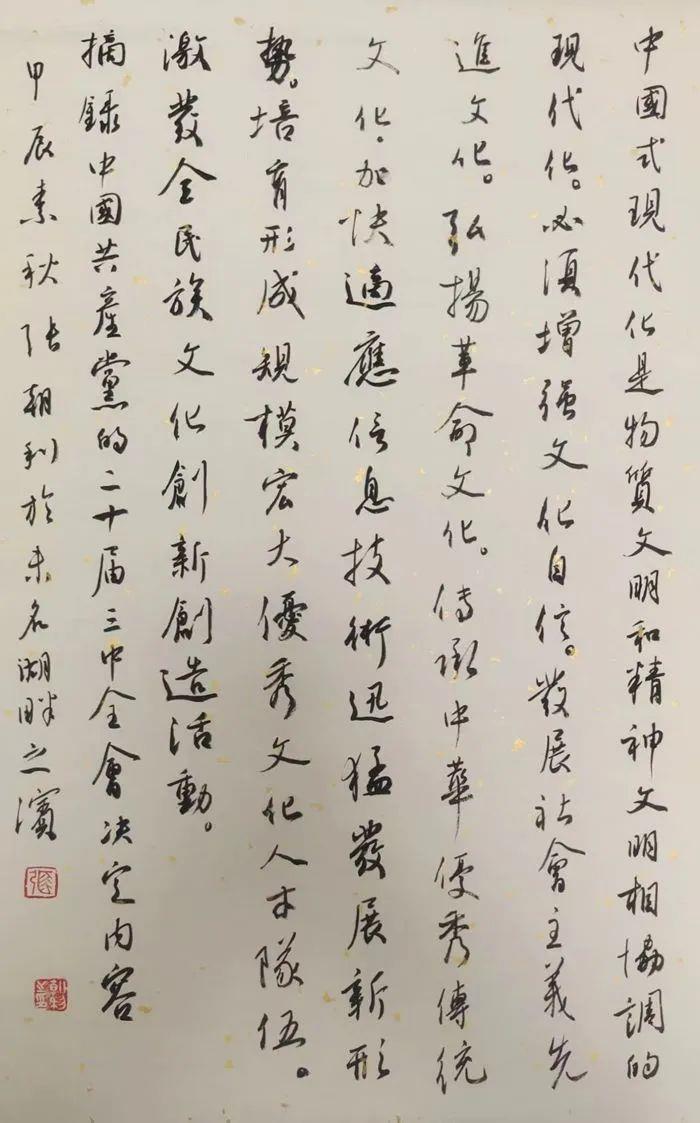 中國式現代化是物質文明和精神文明相協調的
現代化。必須增强文化自信。發展社會主義先
進文化。弘揚革命文化。傳承中華優秀傳統
文化。加快適應信息技術迅猛發展新形
勢。培育形成規模宏大優秀文化人才隊伍。
激發全民族文化創新創造活動。
摘録中國共產黨的二十届三中全會决定内容
甲辰素秋張朝利於未名湖畔之濱
張